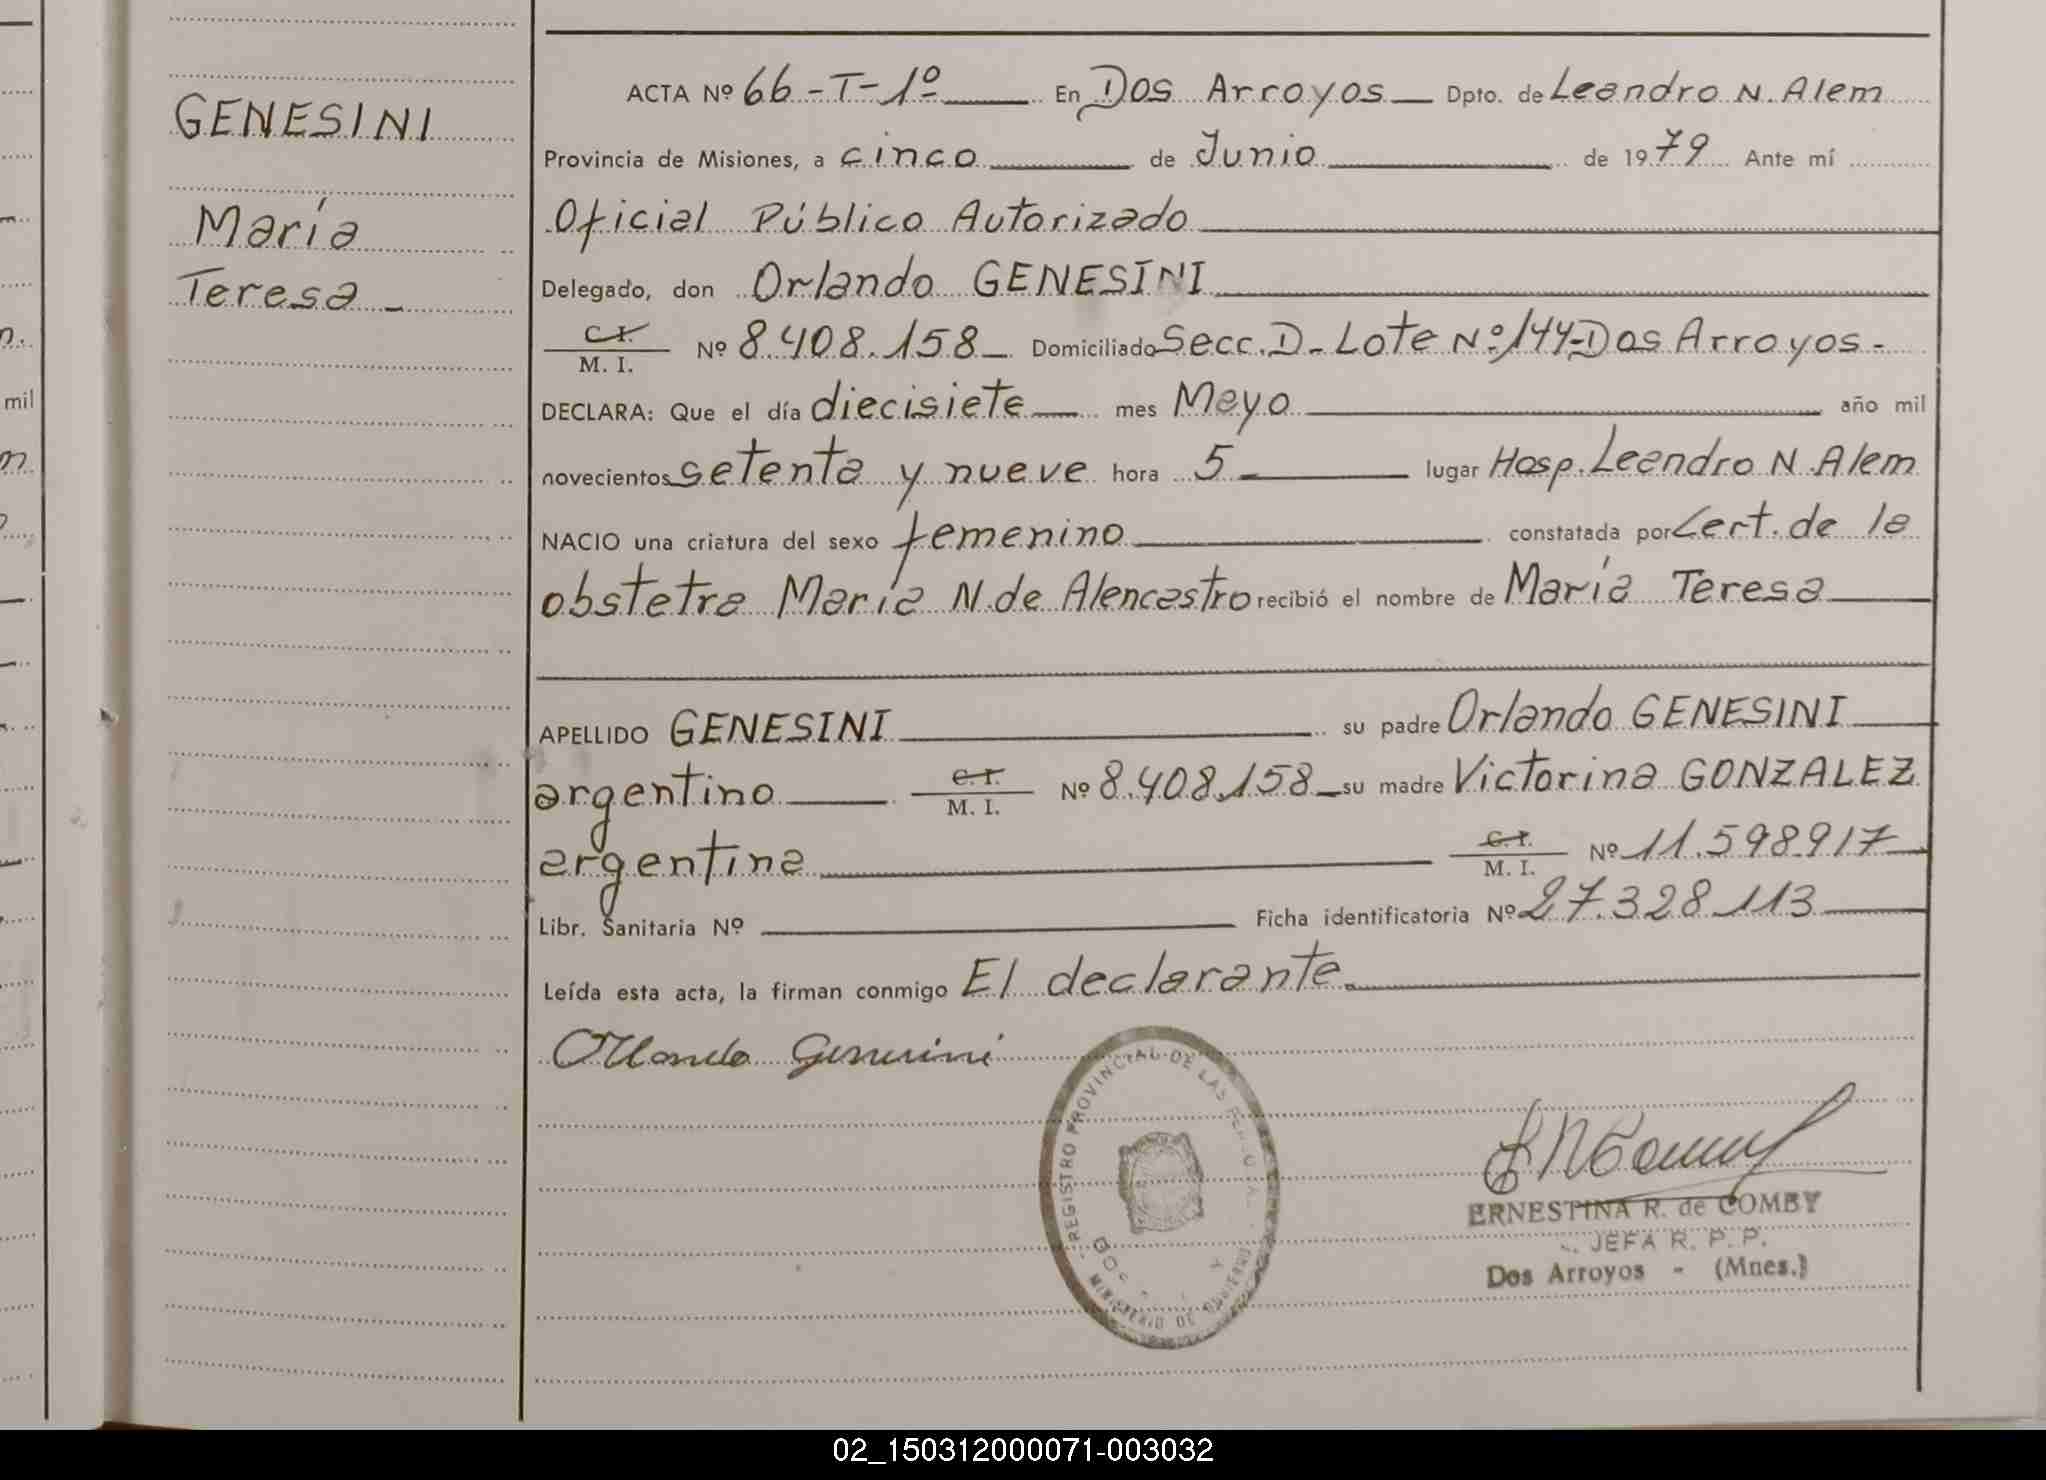 GENESINI
María
Teresa
mil
ACTA Nº 66-T-1º En Dos Arroyos Dpto. de Leandro N. Alem
Provincia de Misiones, a cinco de Junio de 1979 Ante mí
Oficial Público Autorizado
Delegado, don Orlando GENESINI
C.I.
M. I. Nº 8.408.158 Domiciliado Secc. D- Lote Nº 144-Dos Arroyos-
DECLARA: Que el día diecisiete mes Mayo año mil
novecientos setenta y nueve hora 5 lugar Hosp. Leandro N. Alem
NACIO una criatura del sexo femenino constatada por Cert. de la
obstetra María N. de Alencastro recibió el nombre de María Teresa
APELLIDO GENESINI su padre Orlando GENESINI
argentino C.I. M. I. Nº 8.408.158 su madre Victorina GONZALEZ
argentina C.I. M. I. Nº 11.598.917
Libr. Sanitaria Nº Ficha identificatoria Nº 27.328.113
Leída esta acta, la firman conmigo El declarante.
Orlando Genesini
REGISTRO PROVINCIAL DE LAS PERSONAS
DOS
MINISTERIO DE GOBIERNO
ERNESTINA R. de COMBY
JEFA R. P. P.
Dos Arroyos - (Mnes.)
02_150312000071-003032